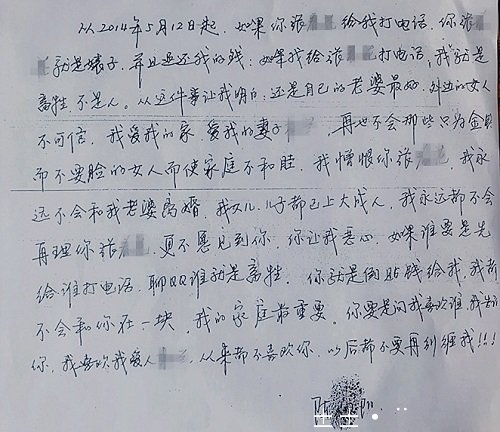 从2014年5月12日起，如果你张 给我打电话，你张
就是婊子，并且退还我的钱；如果我给张 打电话，我就是
畜牲不是人。从这件事让我明白：还是自己的老婆最好，外边的女人
不可信，我爱我的家，爱我的妻子 ，再也不会那些只为金
而不要脸的女人而使家庭不和睦，我憎恨你张 ，我永
远不会和我老婆离婚，我女儿、儿子都已上大成人，我永远都不会
再理你张 ，更不愿见到你，你让我恶心，如果谁要是先
给谁打电话、聊QQ谁就是畜牲，你就是倒贴钱给我，我都
不会和你在一块，我的家庭最重要。你要是问我喜欢谁，我告
你，我喜欢我爱人 ，从来都不喜欢你，以后都不要再纠缠我!!!